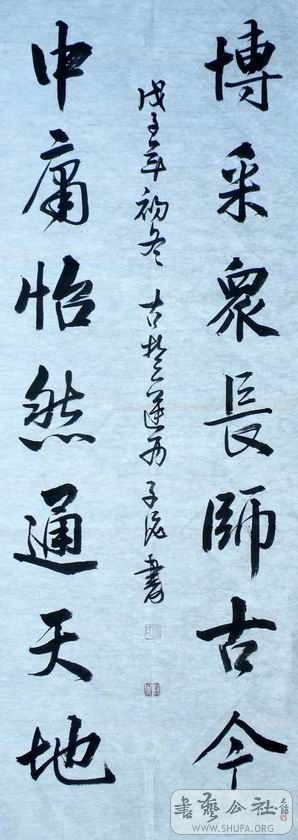 博采衆長師古今
戊子年初冬 古楚 子 書
中庸怡然通天地
書藝公社
WWW.SHUFA.ORG